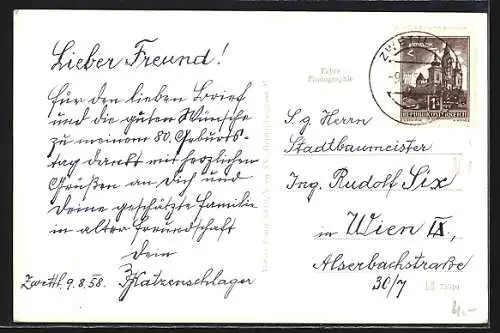 Lieber Freund!
für den lieben Brief
und die guten Wünsche
zu meinem 80. Geburts-
tag dankt mit herzlichen
Grüßen an Dich und
Deine geschätzte Familie
in alter Freundschaft
Dein
Katzenschlager
Zwettl. 9.8.58.
Echte
Photographie
ZWETTL
REPUBLIK ÖSTERREICH
S. g. Herrn
Stadtbaumeister
Ing. Rudolf Six
in Wien IX.,
Alserbachstraße
30/7
4.-